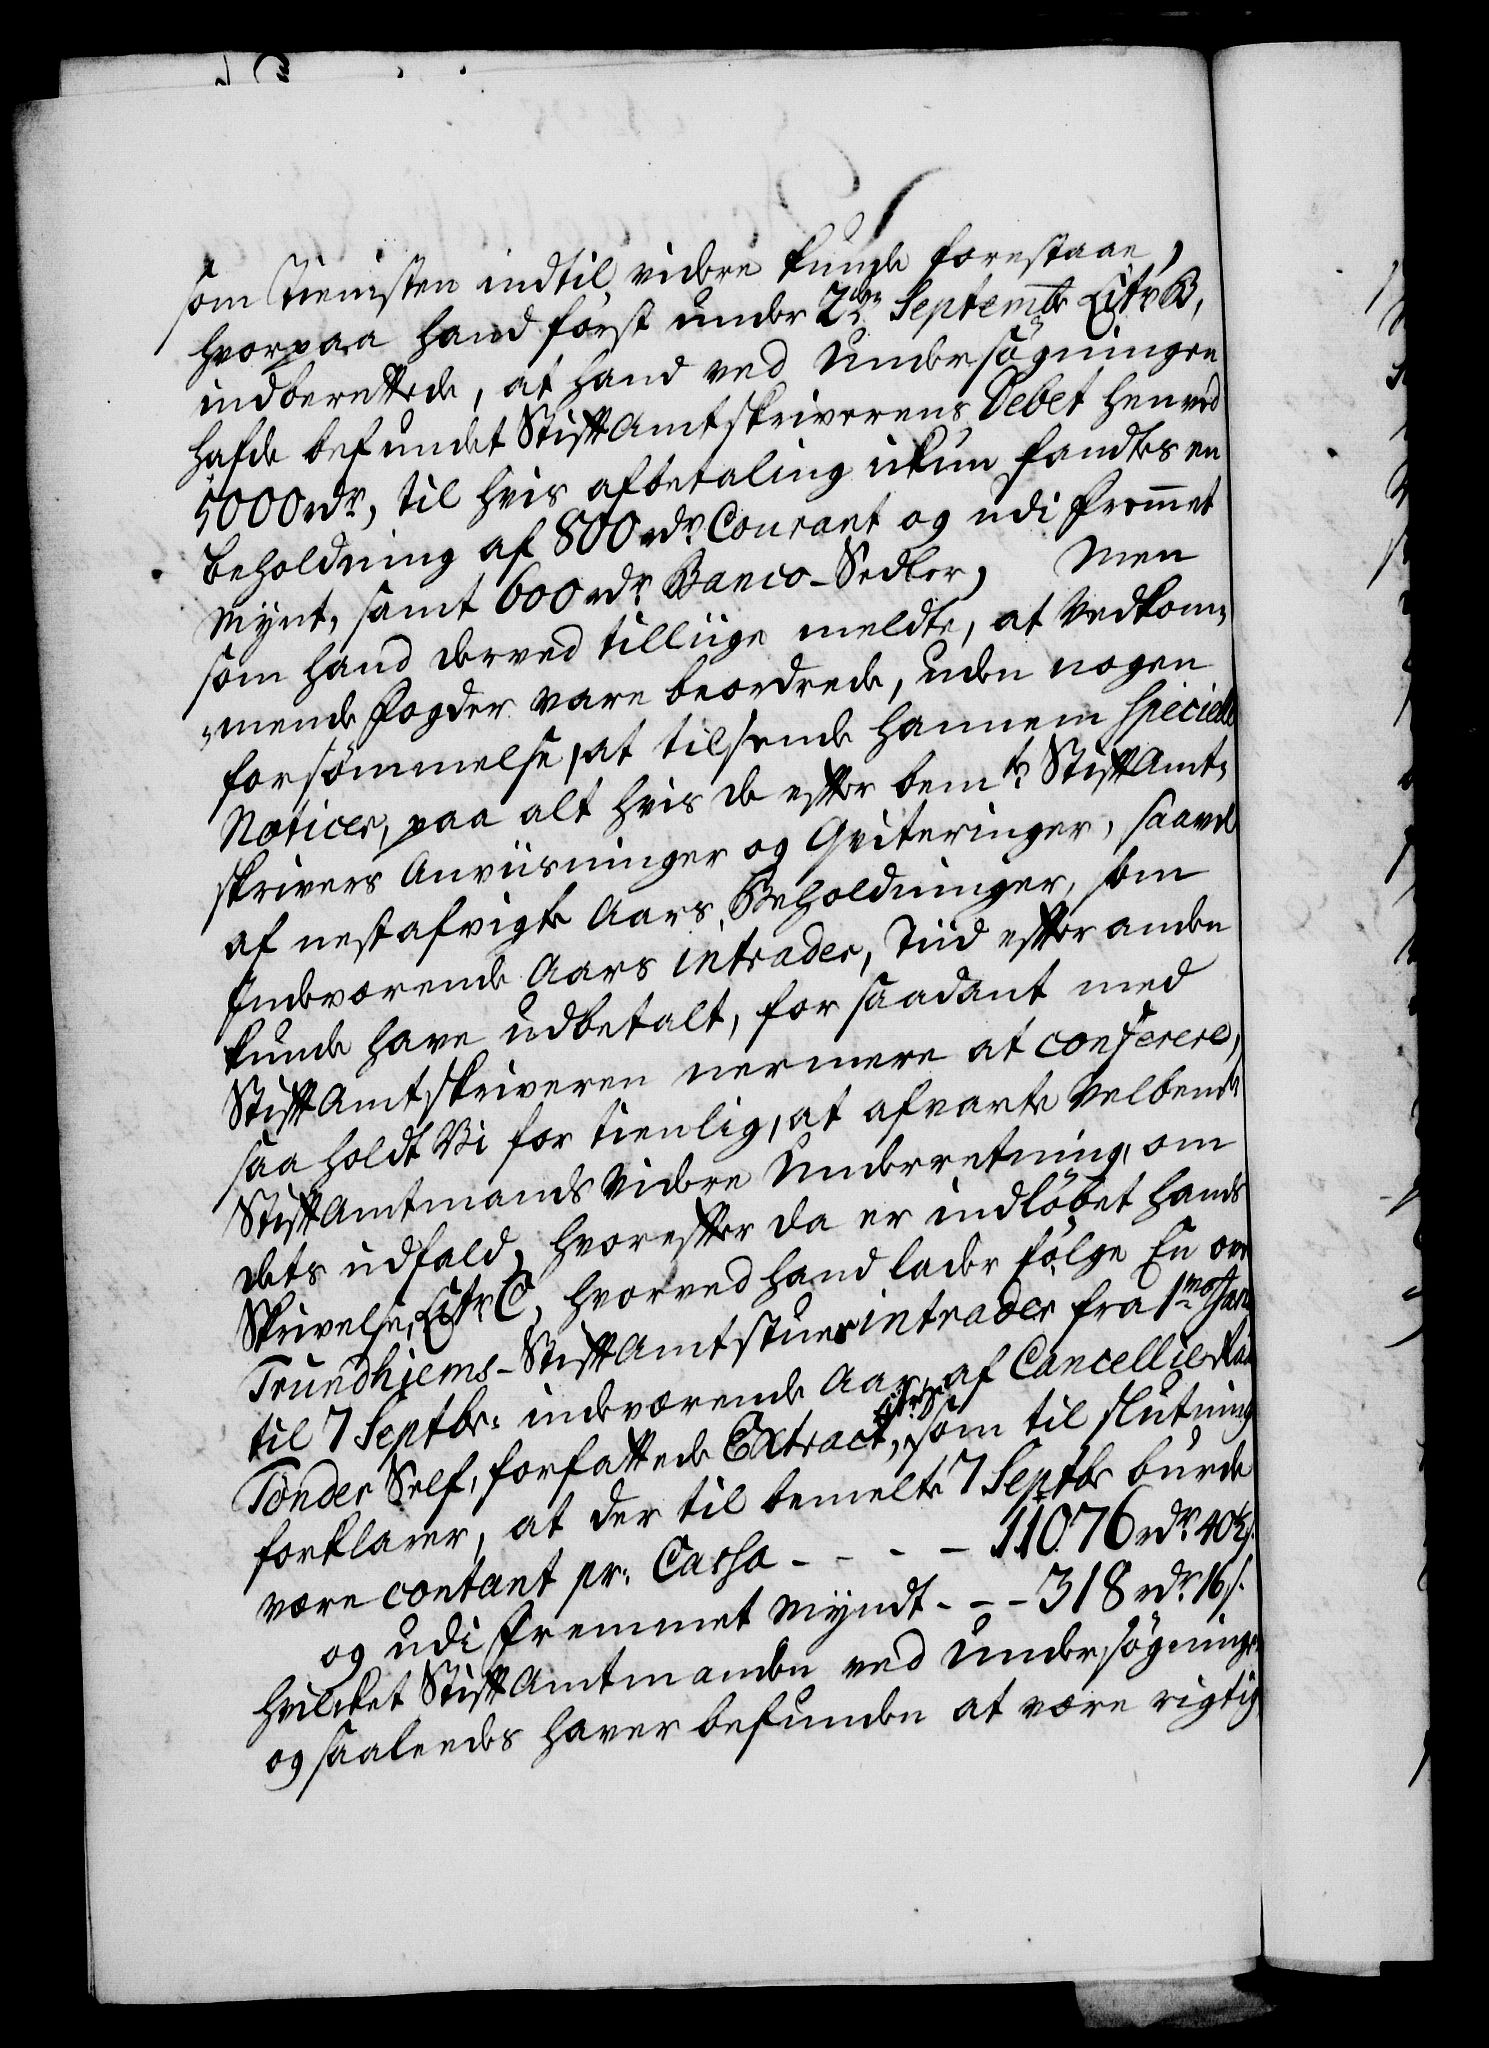 som Tienisten indtil videre kunde forestaae,
hvorpaa hand först under 2den Septembr Litr B,
indberettede, at hand ved Undersögningen
hafde befundet StiftAmtskriverens Debet henved
5000 rdr, til hvis afbetaling ikun fandtes en
beholdning af 800 rdr Courant og udi fremmet
Mynt, samt 600 rdr Banco-Sedler, Men
som hand derved tilliige meldte, at Vedkom,
,mende Fogder vare beordrede, uden nogen
forsömmelse, at tilsende hannem Specielle
Notices, paa alt hvis de efter bemte StiftAmt,
skrivers Anviisninger og Qviteringer, saavel
af nestafvigte Aars Beholdninger, som
Indeværende Aars intrader, Tiid efter anden
kunde have udbetalt, for saadant med
StiftAmtskriveren nermere at conferere,
saa holdt Vi for tienlig, at afvarte Velbemte
StiftAmtmands videre Underretning, om
dets udfald, hvorefter da er indlöbet hands
Skrivelse, Litr C, hvorved hand lader fölge En over
Trundhjems-StiftAmtstues intrader fra 1mo Jan
til 7 Septbr: indeværende Aar, af CancellieRaad
Tonder Self, forfattede Extract, som til slutning
forklarer, at der til bemelte 7 Septbr burde
være contant pr. Cassa - - - - 11076 rdr 40 ß.
og udi fremmet Myndt - - - 318 rdr 16 ß.
hvilcket StiftAmtmanden ved Undersögningen
og saaleedes haver befunden at være rigtig